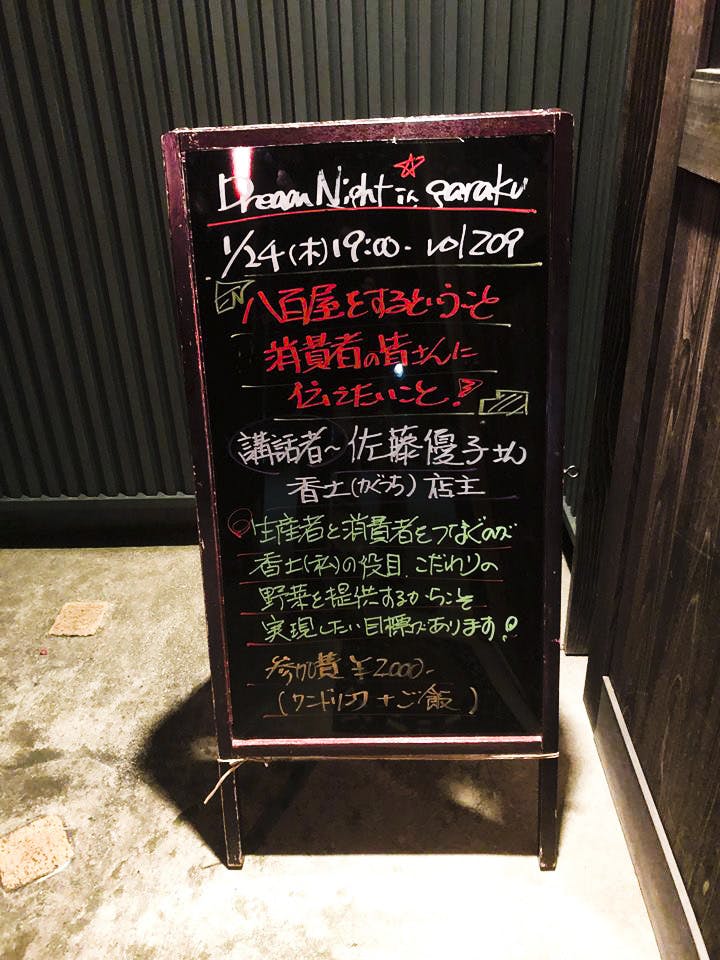 Dream Night in garaku
1/24(木)19:00- vol209
八百屋をするということ
消費者の皆さんに
伝えたいこと!
講話者~佐藤優子さん
香土(かぐつち)店主
生産者と消費者をつなぐのが
香土(私)の役目.こだわりの
野菜を提供するからこそ
実現したい目標があります!
参加費 ¥2000-
(ワンドリンク+ご飯)